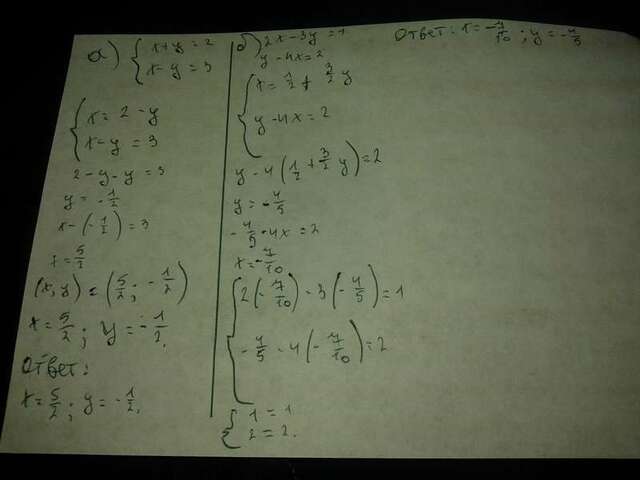 а) { x+y=2
x-y=3
{ x=2-y
x-y=3
2-y-y=3
y=-1/2
x-(-1/2)=3
x=5/2
(x,y)=(5/2; -1/2)
x=5/2; y=-1/2.
Ответ:
x=5/2; y=-1/2.
б) { 2x-3y=1
y-4x=2
{ x=1/2+3/2y
y-4x=2
y-4(1/2+3/2y)=2
y=-4/5
-4/5-4x=2
x=-7/10
{ 2(-7/10)-3(-4/5)=1
-4/5-4(-7/10)=2
{ 1=1
2=2.
Ответ: x=-7/10; y=-4/5